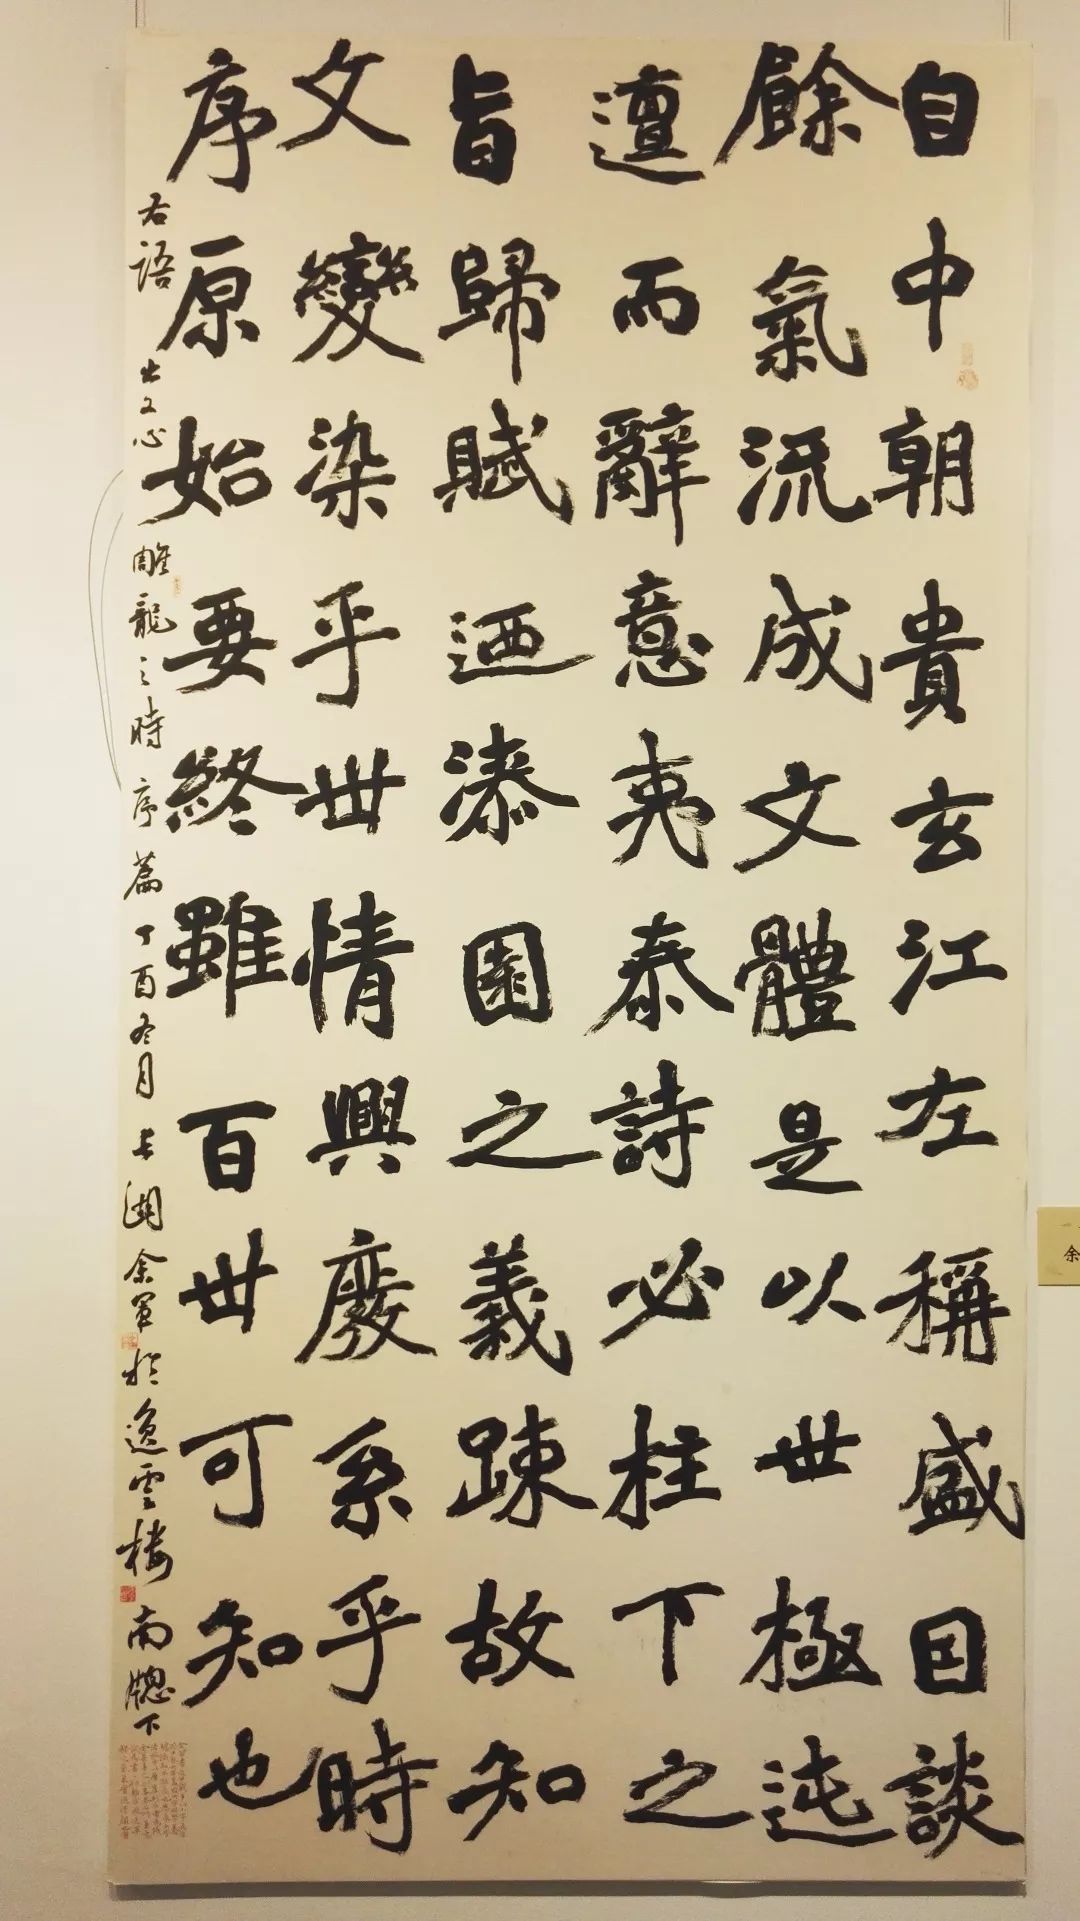 自中朝貴玄江左稱盛因談
餘氣流成文體是以世極迍
邅而辭意夷泰詩必柱下之
旨歸賦迺漆園之義疎故知
文變染乎世情興廢系乎時
序原始要終雖百世可知也
右語出文心雕龍之時序篇丁酉冬月長湖余軍於逸雲樓南牕下
余